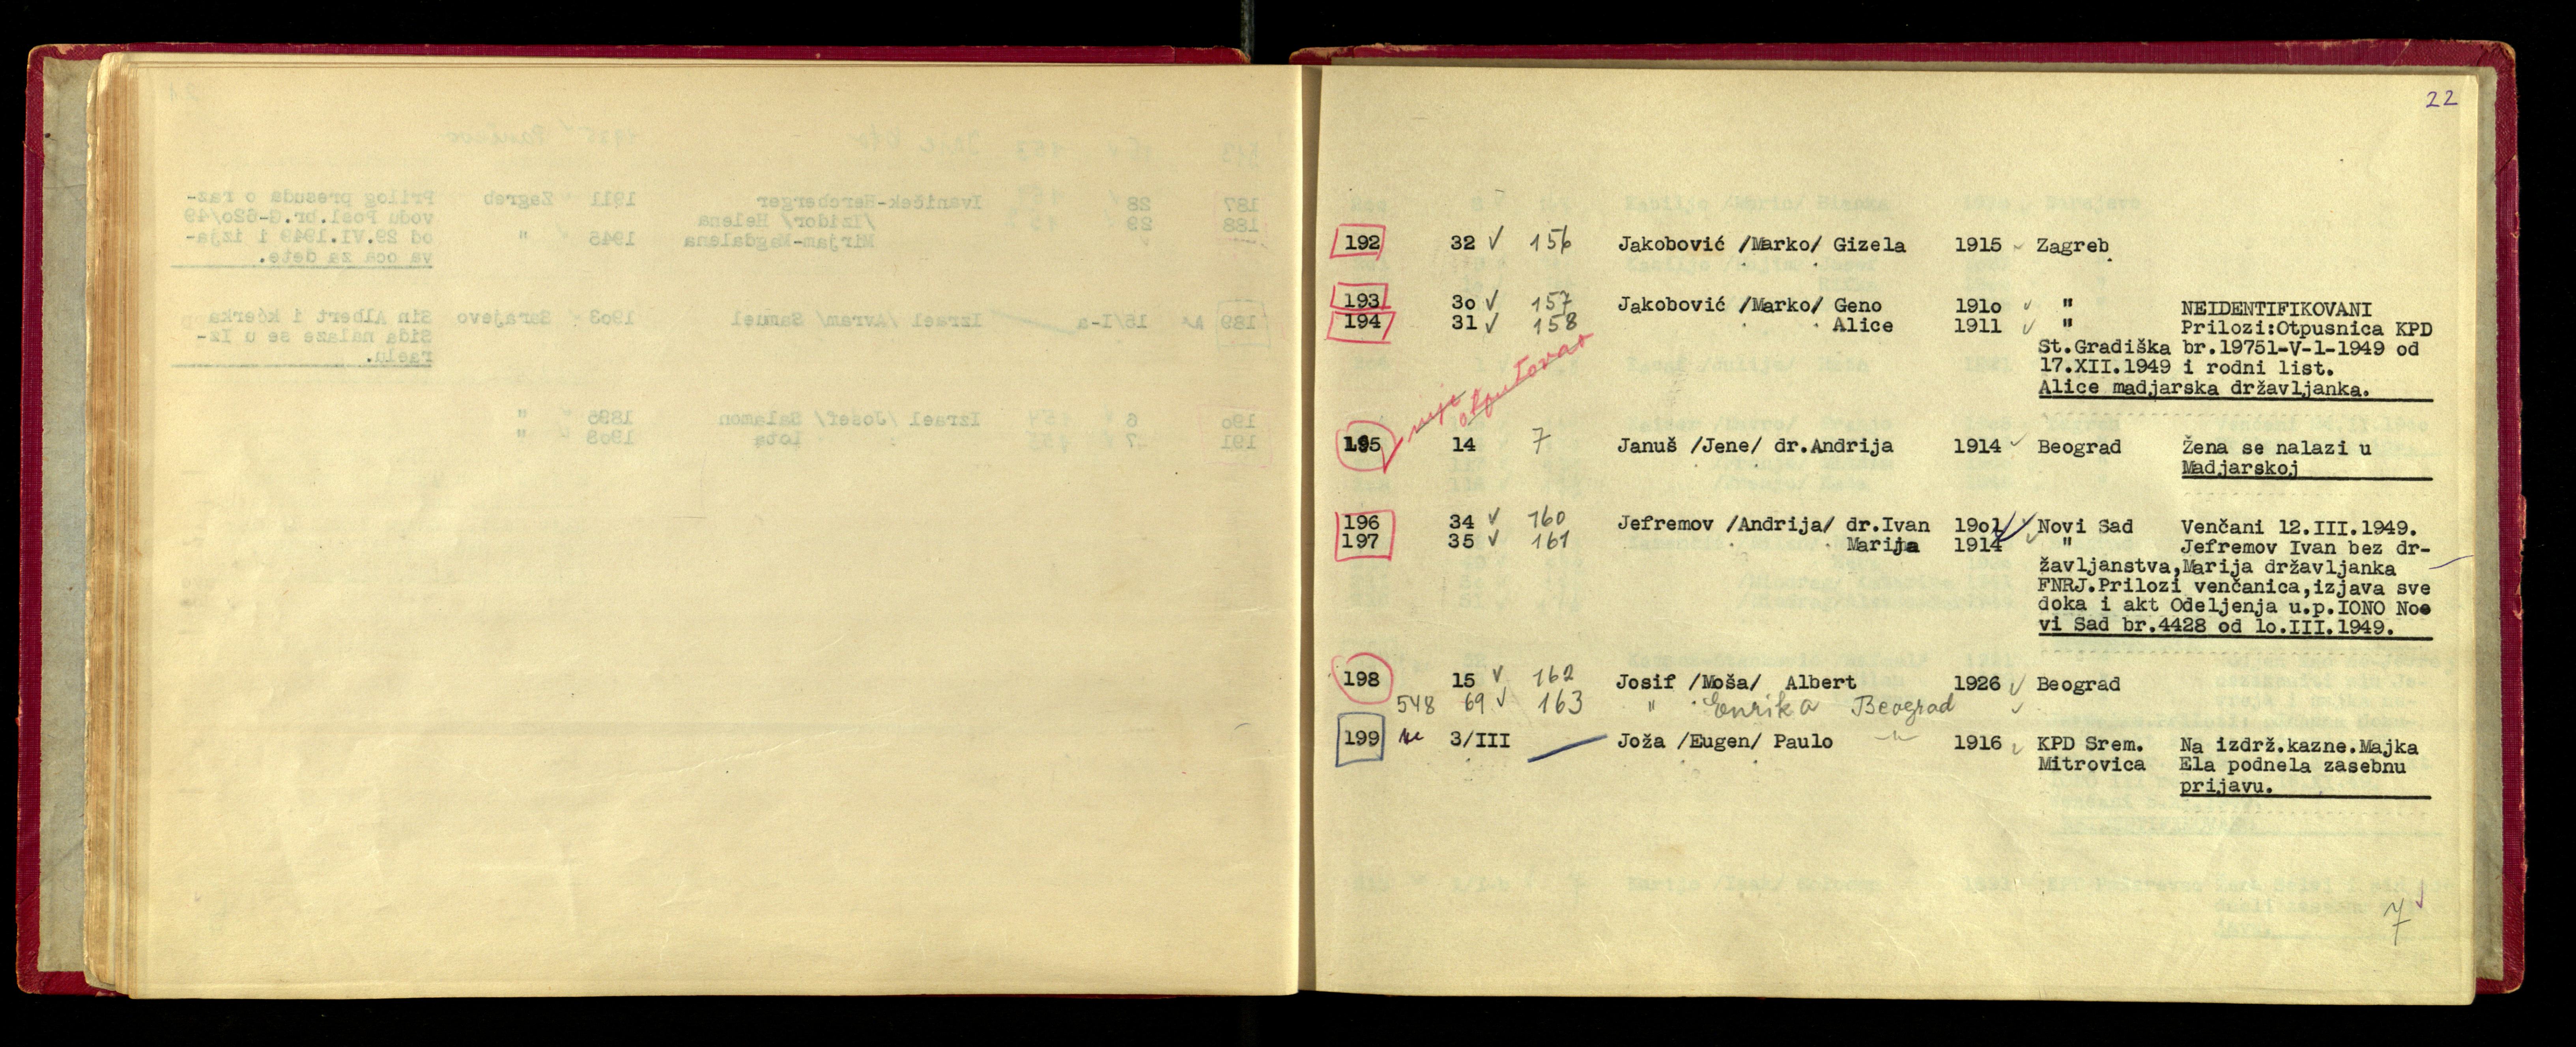 22
192 32 √ 156 Jakobović /Marko/ Gizela 1915 Zagreb
193 3o √ 157 Jakobović /Marko/ Geno 191o " NEIDENTIFIKOVANI
194 31 √ 158 Alice 1911 " Prilozi:Otpusnica KPD
St.Gradiška br.19751-V-1-1949 od
17.XII.1949 i rodni list.
Alice madjarska državljanka.
nije otputovao
195 14 7 Januš /Jene/ dr.Andrija 1914 Beograd Žena se nalazi u
Madjarskoj
196 34 √ 160 Jefremov /Andrija/ dr.Ivan 19o1 Novi Sad Venčani 12.III.1949.
197 35 √ 161 Marija 1914 " Jefremov Ivan bez dr-
žavljanstva,Marija državljanka
FNRJ.Prilozi venčanica,izjava sve
doka i akt Odeljenja u.p.IONO Noe
vi Sad br.4428 od lo.III.1949.
198 15 √ 162 Josif /Moša/ Albert 1926 √ Beograd
548 69 √ 163 " Enrika Beograd √
199 ne 3/III Joža /Eugen/ Paulo 1916 KPD Srem. Na izdrž.kazne.Majka
Mitrovica Ela podnela zasebnu
prijavu.
7